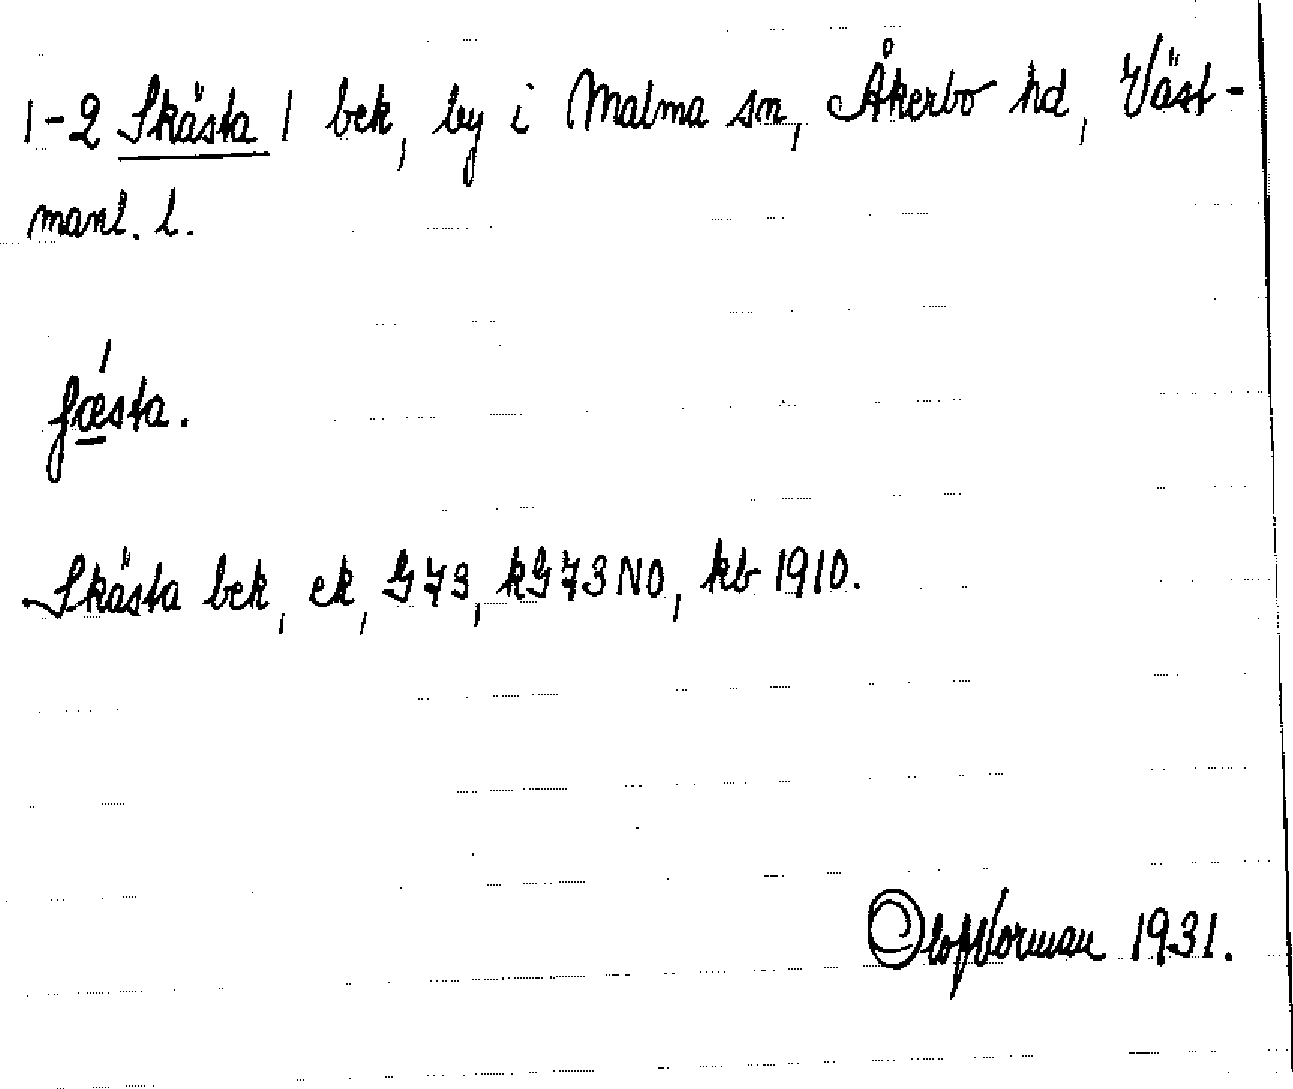 1-2 Skästa / bek, by i Malma sn, Åkerbo hd, Väst-
manl. l.
ʃǽ̲sta.
Skästa bek, ek, G73, kG73NO, kb 1910.
Olof Norman 1931.